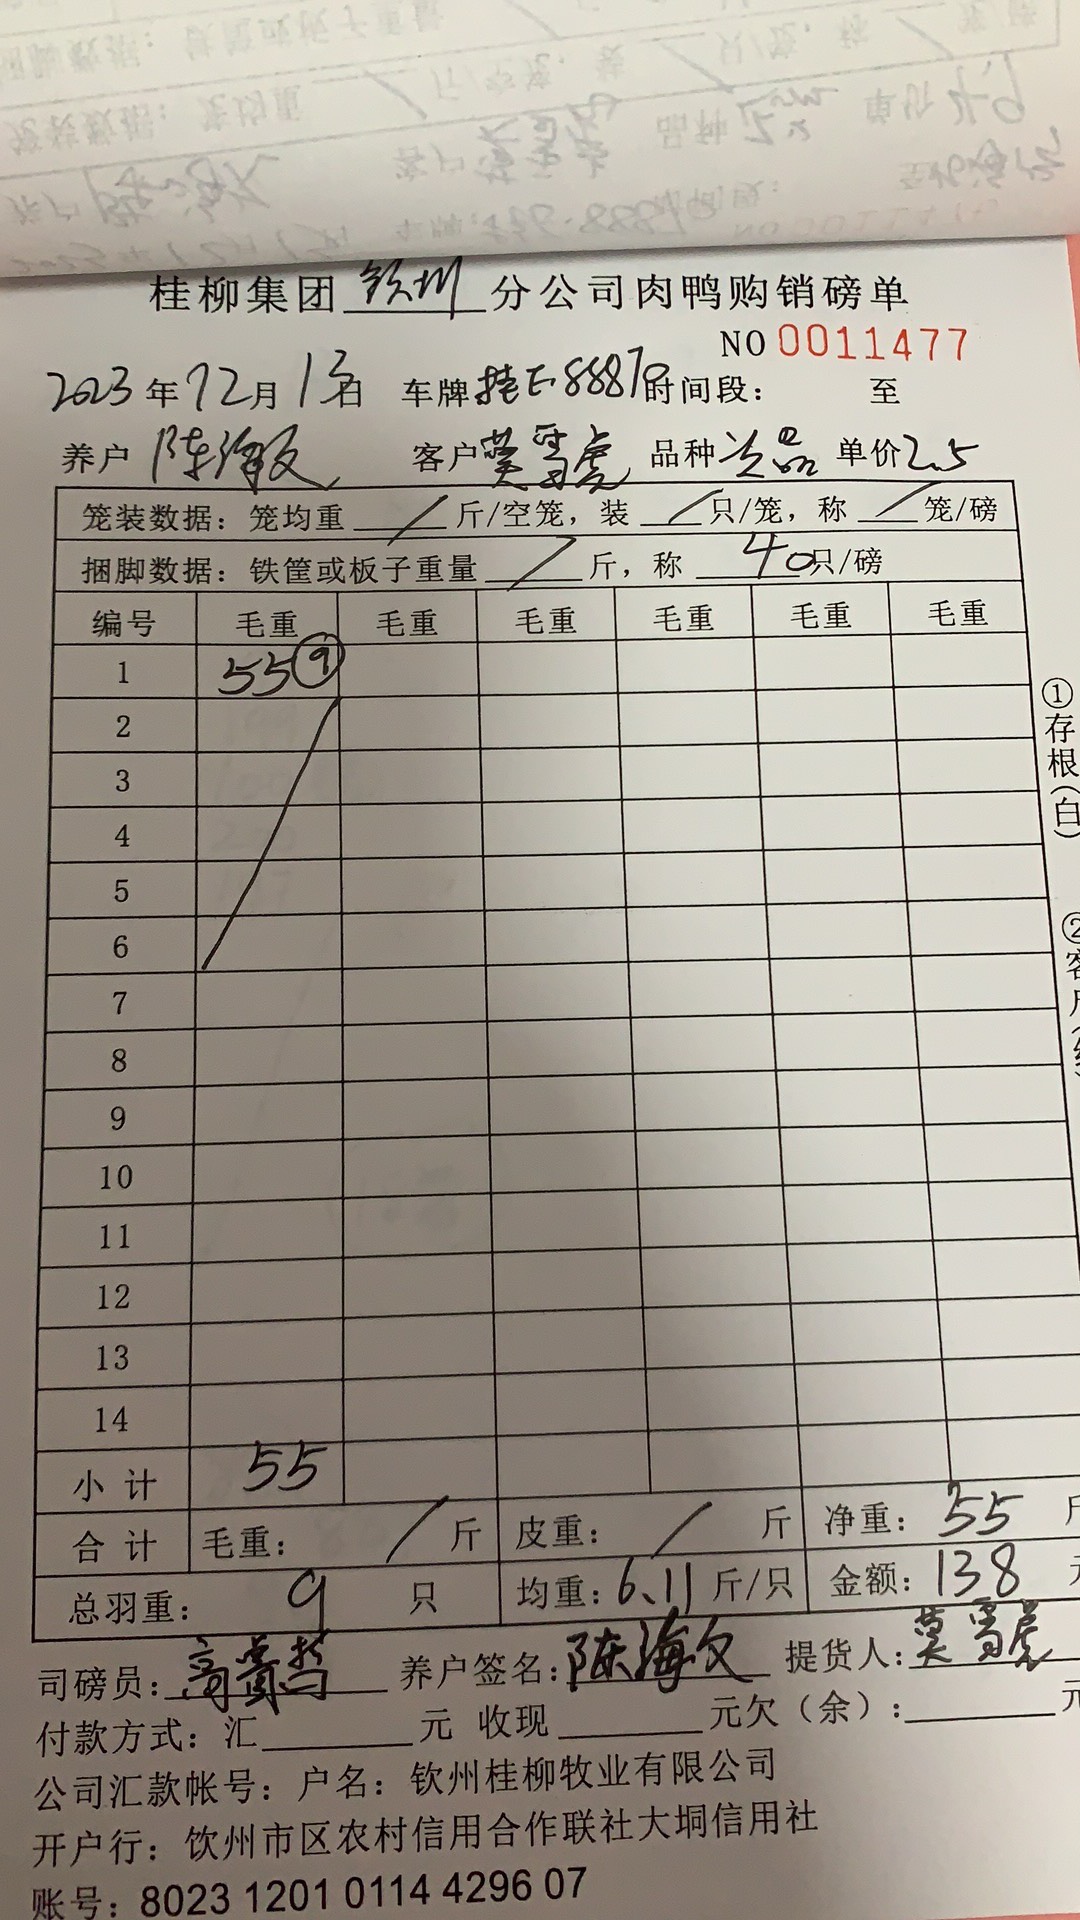 桂柳集团 钦州 分公司肉鸭购销磅单
NO 0011477
2023年12月13日 车牌 桂E88870 时间段: 至
养户 陈海文 客户 莫雪虎 品种 次品 单价 2.5
笼装数据：笼均重 / 斤/空笼，装 / 只/笼，称 / 笼/磅
捆脚数据：铁筐或板子重量 / 斤，称 40 只/磅
编号 毛重 毛重 毛重 毛重 毛重 毛重
1 55 ⑨
2
3
4
5
6
7
8
9
10
11
12
13
14
小计 55
合计 毛重: / 斤 皮重: / 斤 净重: 55 斤
总羽重: 9 只 均重: 6.11 斤/只 金额: 138 元
司磅员: 养户签名: 陈海文 提货人: 莫雪虎
付款方式: 汇 元 收现 元欠（余）: 元
公司汇款帐号：户名：钦州桂柳牧业有限公司
开户行：钦州市区农村信用合作联社大垌信用社
账号：8023 1201 0114 4296 07
①存根(白)
②客户(红)